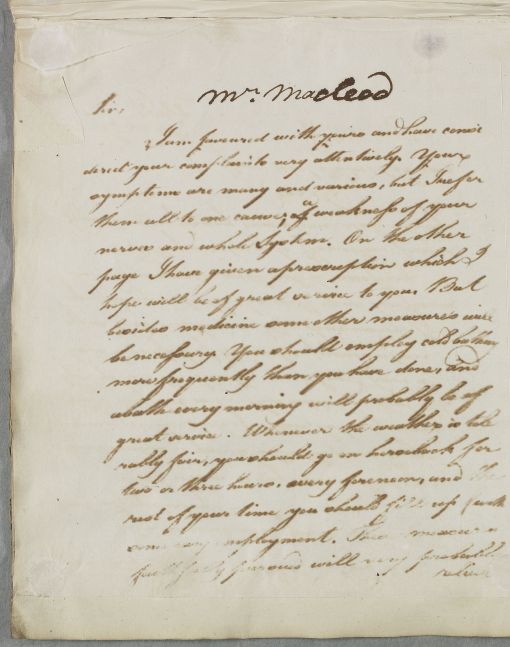 Mr. Macleod
Sir,
I am favoured with yours and have consi
dered your complaints very attentively. Your
symptoms are many and various, but I refer
them all to one cause, a weakness of your
nerves and whole System. On the other
page I have given a prescription which I
hope will be of great service to you. But
besides medicine some other measures will
be necessary. You should employ cold bathing
more frequently than you have done, and
a bath every morning will probably be of
great service. Whenever the weather is tole
rably fair, you should go on horseback for
two or three hours, every forenoon, and the
rest of your time you should fill up with
some easy employment. These measures
faithfully pursued will very probably
relieve